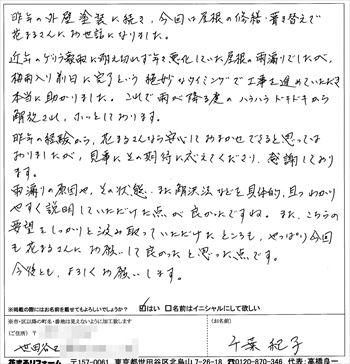 昨年の外壁塗装に続き、今回は屋根の修繕・葺き替えで
花まるさんにお世話になりました。
近年のゲリラ豪雨に耐え切れず年々悪化していた屋根の雨漏りでしたが、
梅雨入り前日に完了という絶妙なタイミングで工事を進めていただき
本当に助かりました。これで雨が降る度のハラハラドキドキから
解放され、ホッとしております。
昨年の経験から、花まるさんなら安心しておまかせできると思っては
おりましたが、見事にその期待に応えてくださり、感謝しており
ます。
雨漏りの原因や、その状態、また解決法などを具体的、且つわかり
やすく説明していただけた点が良かったですね。また、こちらの
要望をしっかりと汲み取っていただけたところも、やっぱり今回
も花まるさんにお願いして良かったと思った点です。
今後とも、よろしくお願いします。
※掲載の際にはお名前を載せてもよろしいでしょうか?
はい □名前はイニシャルにして欲しい
※市・区以降の町名・番地は見えないように加工致します
(ご住所) 〒
(お名前)
世田谷区
千葉 紀子
花まるリフォーム 〒157-0061 東京都世田谷区北烏山7-26-18 0120-870-346 代表:高橋良一